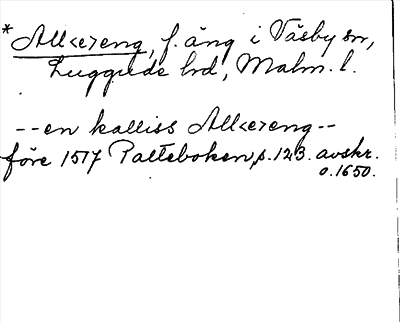 *All<e>eng, f. äng i Väsby sn,
Luggude hd, Malm. l.
--en kalliss All<e>eng--
före 1517 Palteboken, s. 123. avskr.
o. 1650.